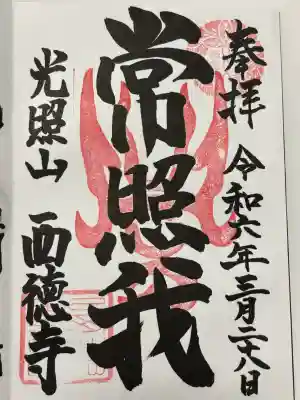 奉拝 令和六年三月二十八日
常照我
光照山 西徳寺